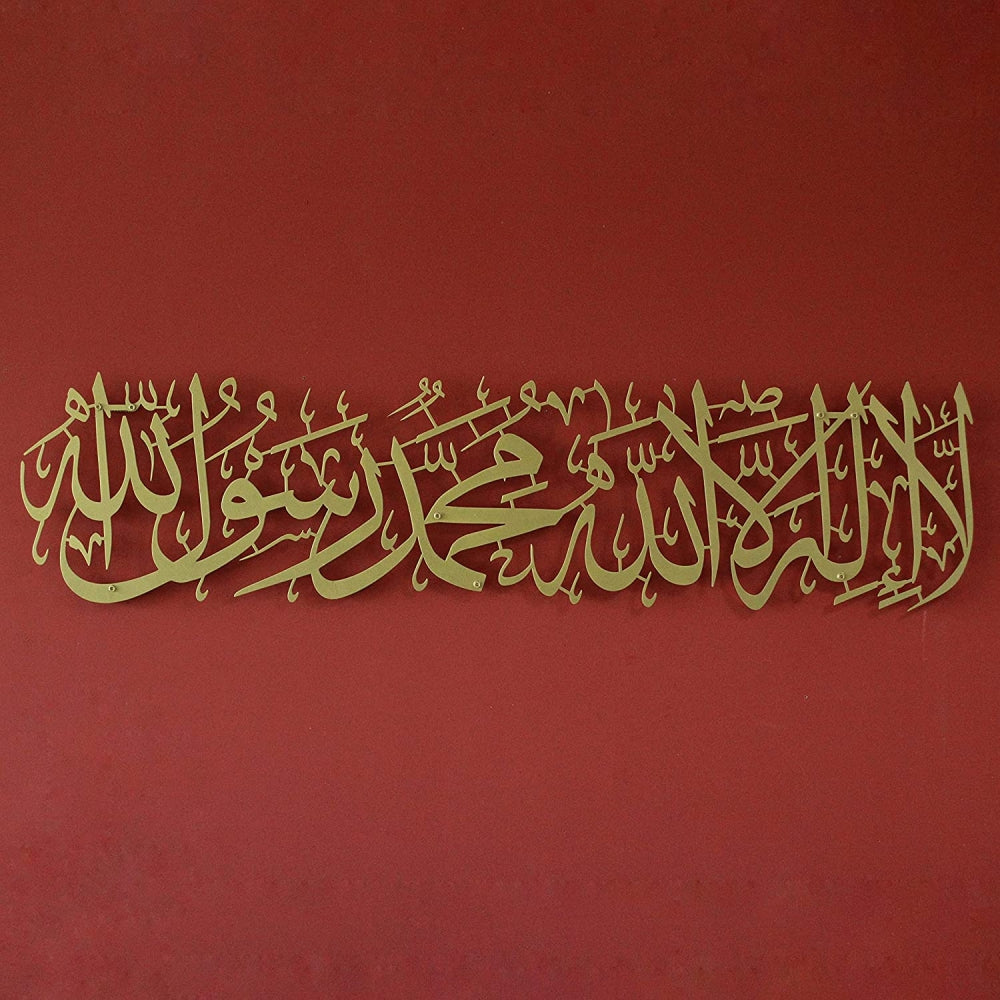 لَا إِلَهَ إِلَّا اللَّهُ مُحَمَّدٌ رَسُولُ اللَّهِ